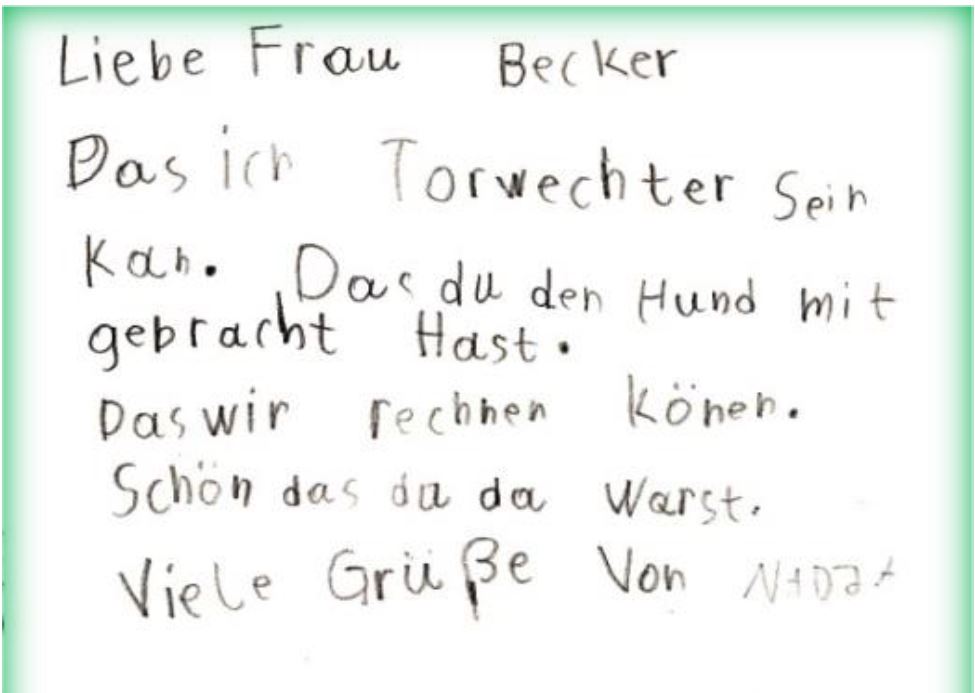 Liebe Frau Becker
Das ich Torwechter Sein
Kan. Das du den Hund mit
gebracht Hast.
Das wir rechnen Könen.
Schön das du da Warst.
Viele Grüße Von